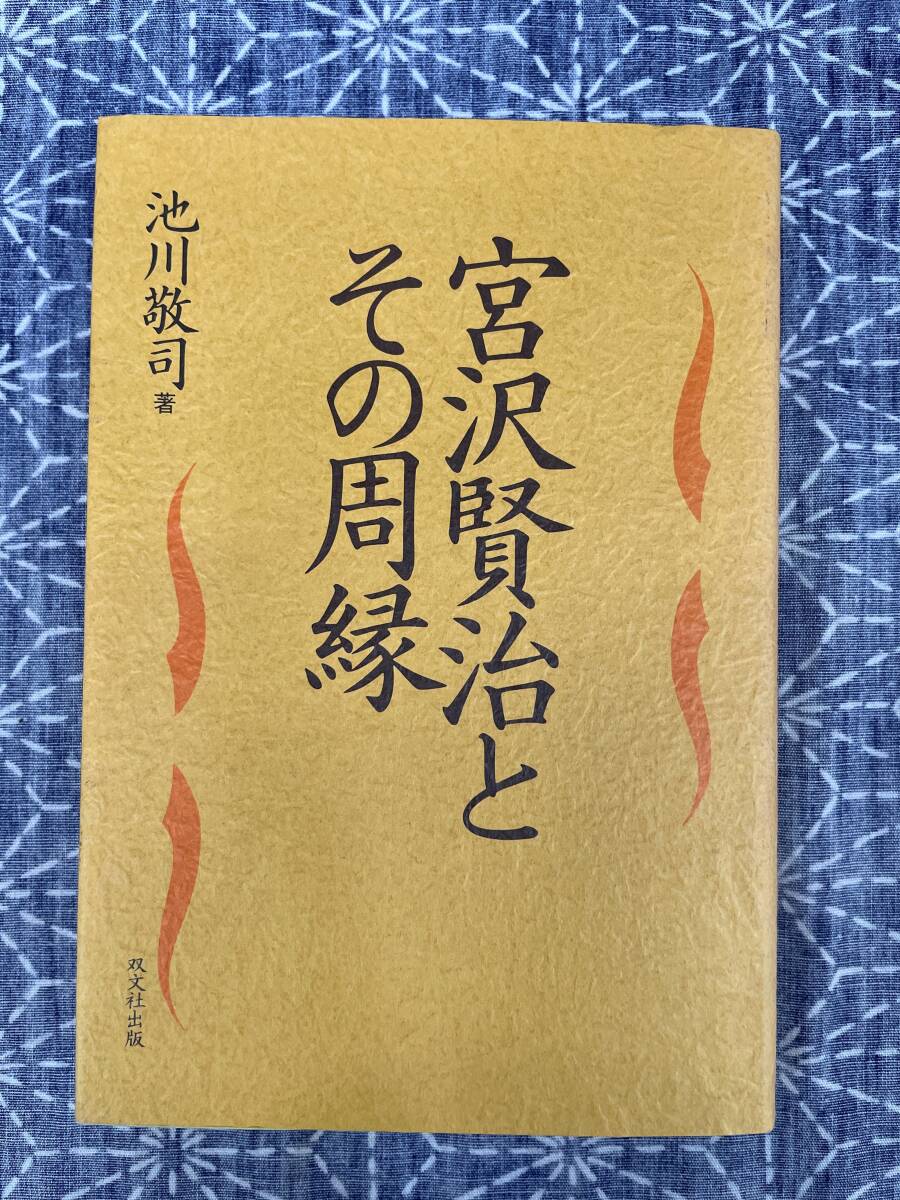 宮沢賢治と
その周縁
池川敬司 著
双文社出版